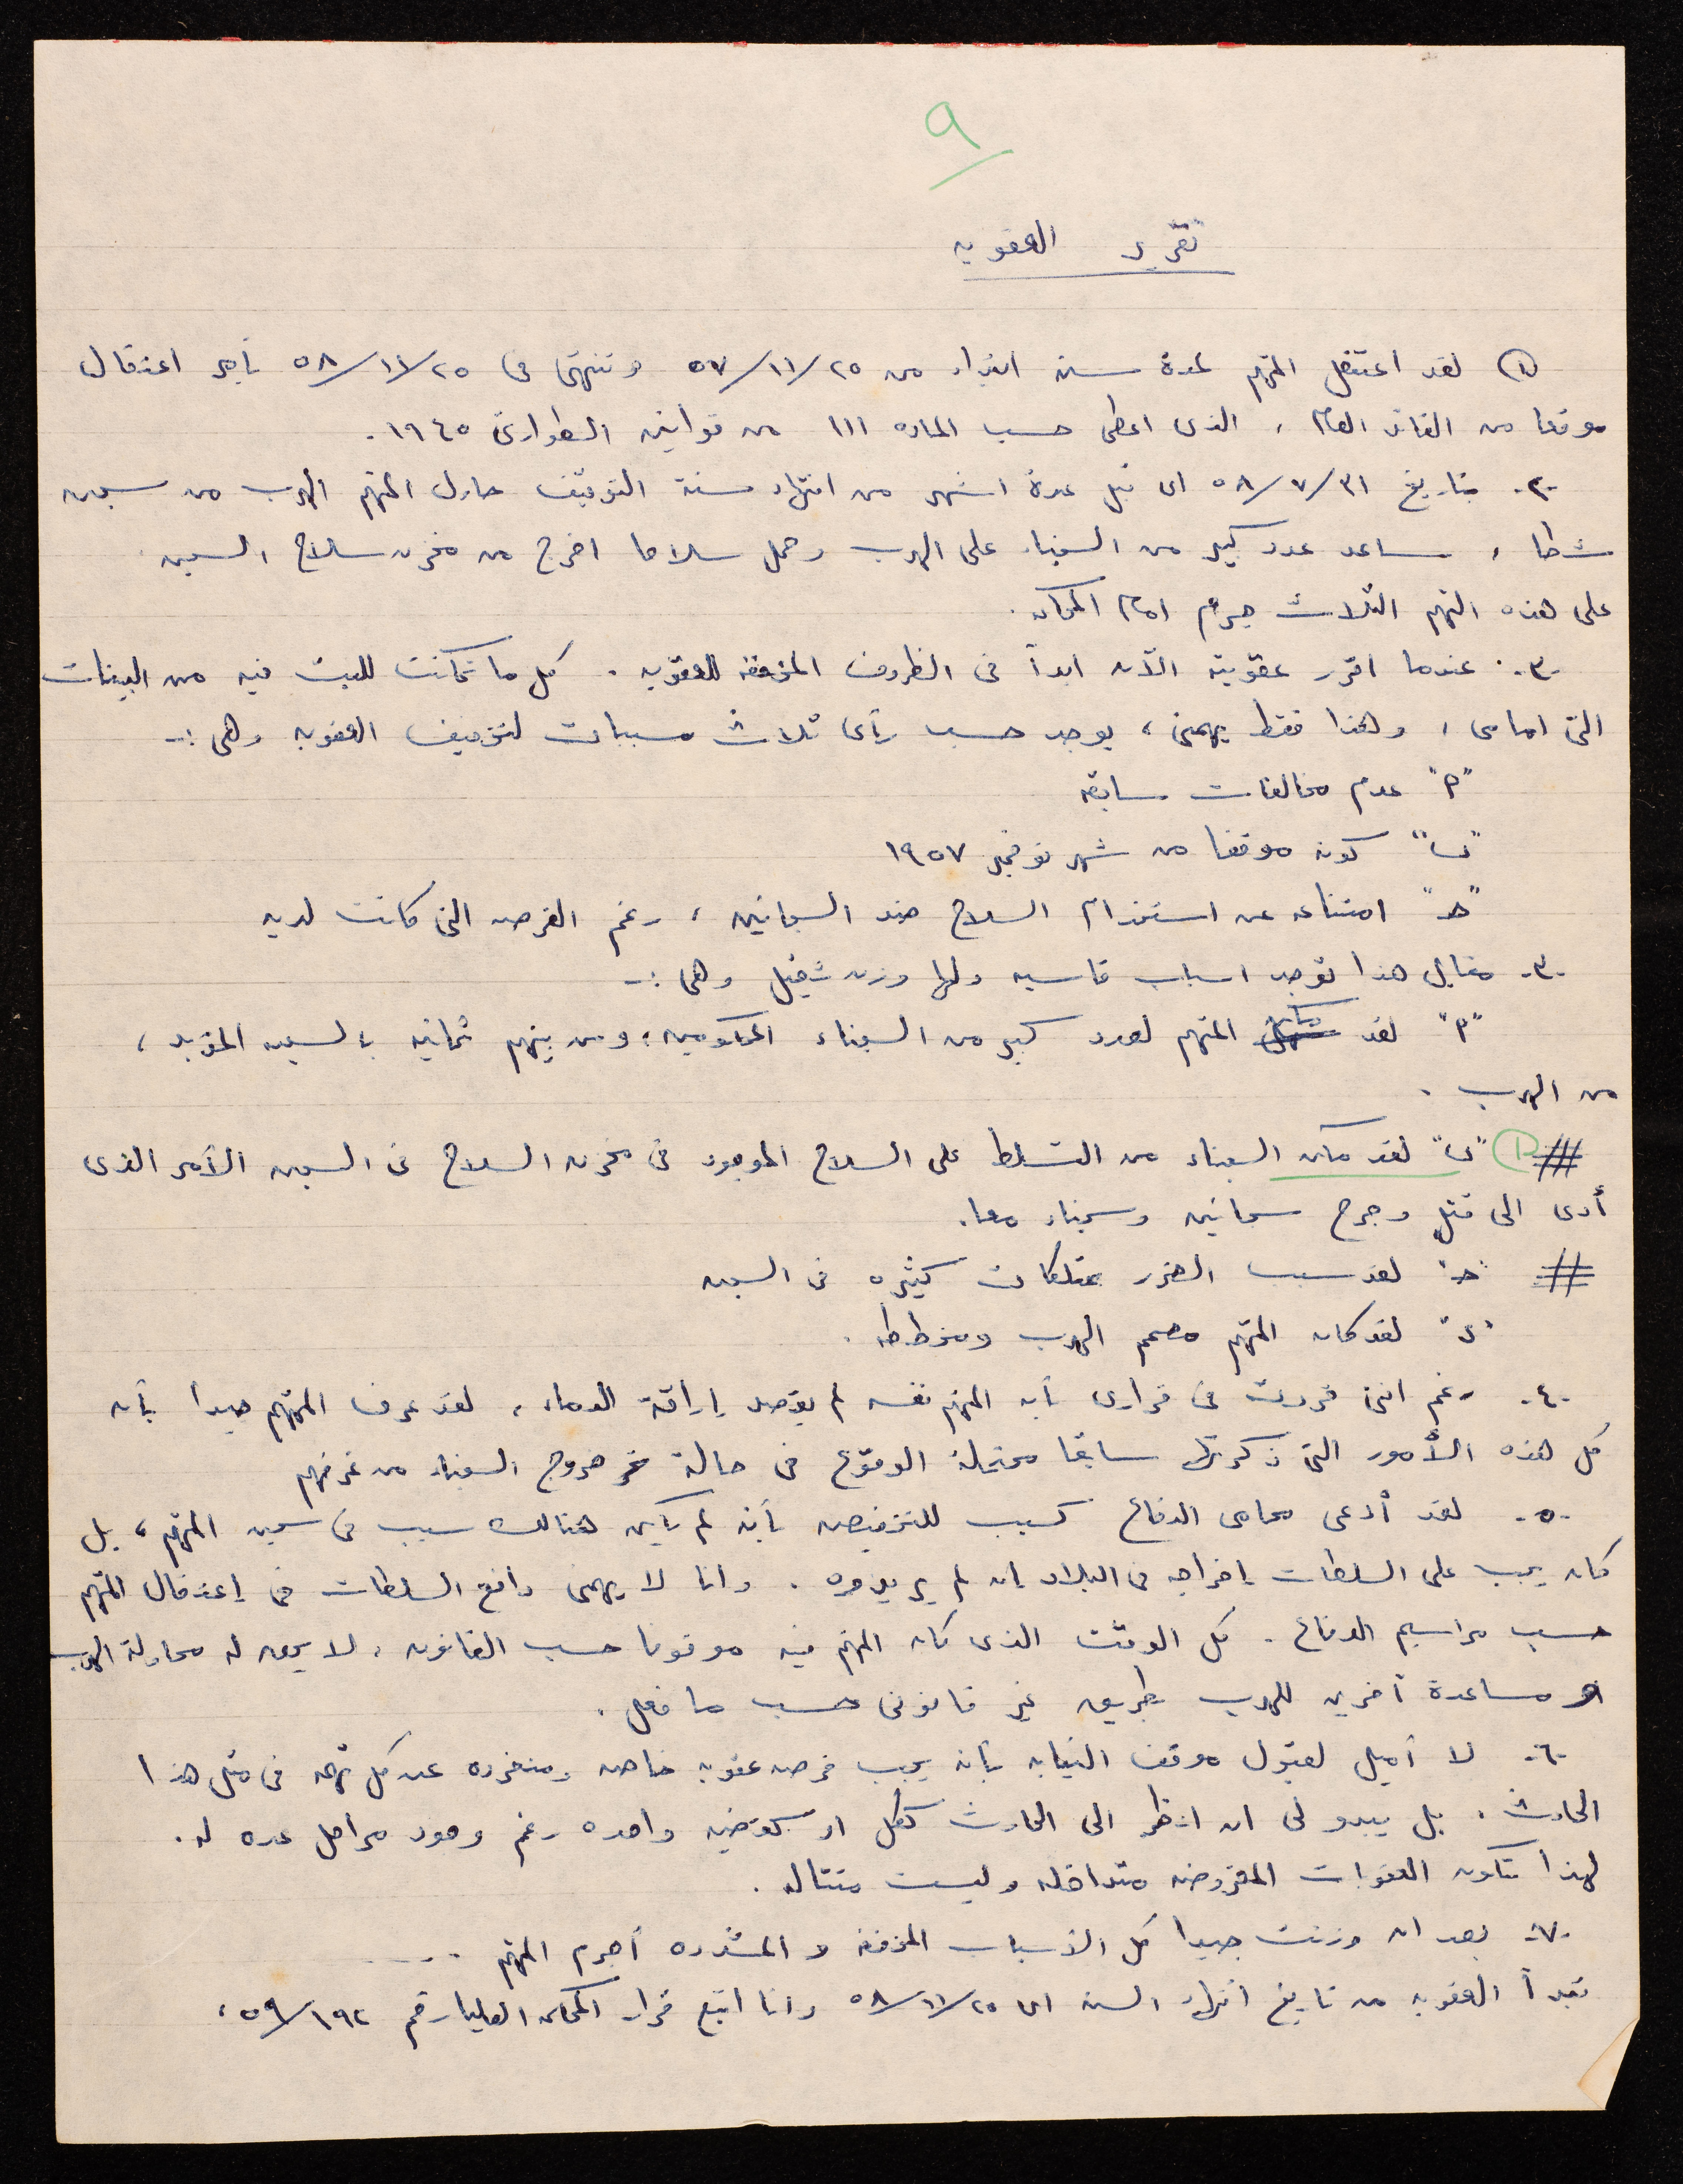 ٩
تقرير العقوبه
(١) لقد اعتقل المتهم لمدة سنه ابتداء من ٢٥/١١/٥٧ وتنتهى فى ٢٥/١١/٥٨ بأمر اعتقال
موقعا من القائد العام ، الذى اعطى حسب الماده ١١١ من قوانين الطوارئ ١٩٤٥.
-٢- بتاريخ ٣١/٧/٥٨ اى قبل عدة اشهر من انتهاء سنة التوقيف حاول المتهم الهرب من سجن
شطا ، ساعد عدد كبير من السجناء على الهرب وحمل سلاحا اخرج من مخزن سلاح السجن
على هذه التهم الثلاث جرم امام المحكمه.
-٣- عندما اقرر عقوبته الآن ابدأ فى الظروف المخففه للعقوبه . كل ما تمكنت للبت فيه من البينات
التى امامى ، وهذا فقط يهمنى ، يوجد حسب رأى ثلاث مسببات لتخفيف العقوبه وهى :-
"أ" عدم مخالفات سابقه
"ب" كونه موقفا من شهر نوفمبر ١٩٥٧
"حـ" امتناعه عن استخدام السلاح ضد السجانين ، رغم الفرصه التى كانت لديه
-٣- مقابل هذا توجد اسباب قاسيه ولها وزن ثقيل وهى :-
"أ" لقد مكن المتهم لعدد كبير من السجناء المحكومين ، ومن بينهم ثمانيه بالسجن المؤبد ،
من الهرب .
(١) "ب" لقد مكن السجناء من التسلط على السلاح الموجود فى مخزن السلاح فى السجن الأمر الذى
أدى الى قتل وجرح سجانين وسجناء معا.
"حـ" لقد سبب الضرر بممتلكات كثيره فى السجن
"د" لقد كان المتهم مصمم الهرب ومخططه .
-٤- رغم اننى قررت فى قرارى بأن المتهم نفسه لم يقصد إراقة الدماء ، لقد عرف المتهم جيدا بأن
كل هذه الأمور التى ذكرتها سابقا محتملة الوقوع فى حالة خروج السجناء من غرفهم
-٥- لقد أدعى محامى الدفاع كسبب للتخفيض بأنه لم يكن هنالك سبب فى سجن المتهم ، بل
كان يجب على السلطات إخراجه من البلاد إن لم يريدوه . وانا لا يهمنى دافع السلطات فى إعتقال المتهم
حسب مراسيم الدفاع . كل الوقت الذى كان المتهم فيه موقوفا حسب القانون ، لا يحق له محاولة الهرب
او مساعدة آخرين للهرب بطريق غير قانونى حسب ما فعل .
-٦- لا أميل لقبول موقف النيابه بأنه يجب فرض عقوبه خاصه ومنفرده عن كل تهمه فى مثل هذا
الحادث . بل يبدو لى ان انظر الى الحادث ككل او كقضيه واحده رغم وجود مراحل عده له .
لهذا تكون العقوبات المفروضه متداخله وليست متتاليه .
-٧- بعد ان وزنت جيدا كل الأسباب المخففه و المشدده أجرم المتهم .....
تبدأ العقوبه من تاريخ انتهاء السنه اى ٢٥/١١/٥٨ وانا اتبع قرار المحكمه العليا رقم ١٩٢/٥٩ ،